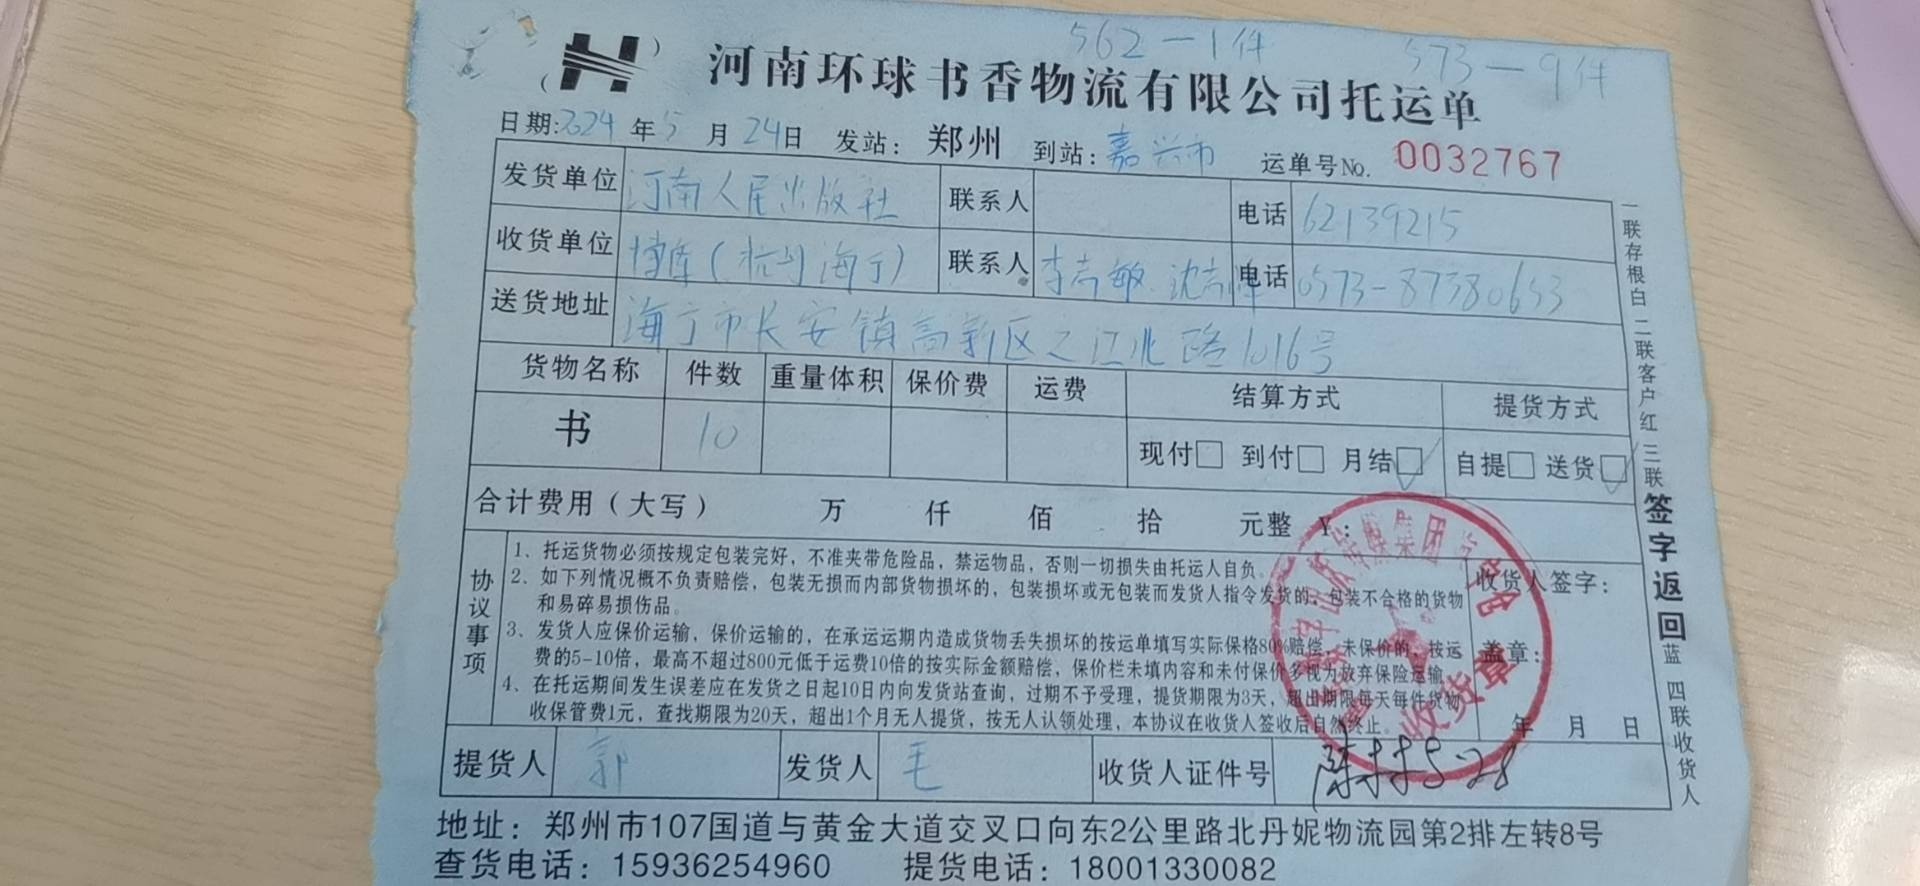 562-1件 573-9件
河南环球书香物流有限公司托运单
日期:2024年5月24日 发站: 郑州 到站: 嘉兴市 运单号No. 0032767
发货单位 河南人民出版社 联系人 电话 62139215
收货单位 博库(杭州海宁) 联系人 李志敏 沈志 电话 0573-87380653
送货地址 海宁市长安镇高新区之江北路1016号
货物名称 件数 重量体积 保价费 运费 结算方式 提货方式
书 10 现付□ 到付□ 月结□ 自提□ 送货□
合计费用(大写) 万 仟 佰 拾 元整 ¥:
协议事项
1、托运货物必须按规定包装完好,不准夹带危险品,禁运物品,否则一切损失由托运人自负。
2、如下列情况概不负责赔偿,包装无损而内部货物损坏的,包装损坏或无包装而发货人指令发货的,包装不合格的货物
和易碎易损伤品。
3、发货人应保价运输,保价运输的,在承运运期内造成货物丢失损坏的按运单填写实际保格80%赔偿,未保价的,按运
费的5-10倍,最高不超过800元低于运费10倍的按实际金额赔偿,保价栏未填内容和未付保价多视为放弃保险运输
4、在托运期间发生误差应在发货之日起10日内向发货站查询,过期不予受理,提货期限为3天,超出期限每天每件货物
收保管费1元,查找期限为20天,超出1个月无人提货,按无人认领处理,本协议在收货人签收后自然终止。
收货人签字:
盖章:
年 月 日
集团
收货章
提货人 郭 发货人 毛 收货人证件号 5-28
一联存根白 二联客户红 三联签字返回蓝 四联收货人
地址:郑州市107国道与黄金大道交叉口向东2公里路北丹妮物流园第2排左转8号
查货电话:15936254960 提货电话:18001330082